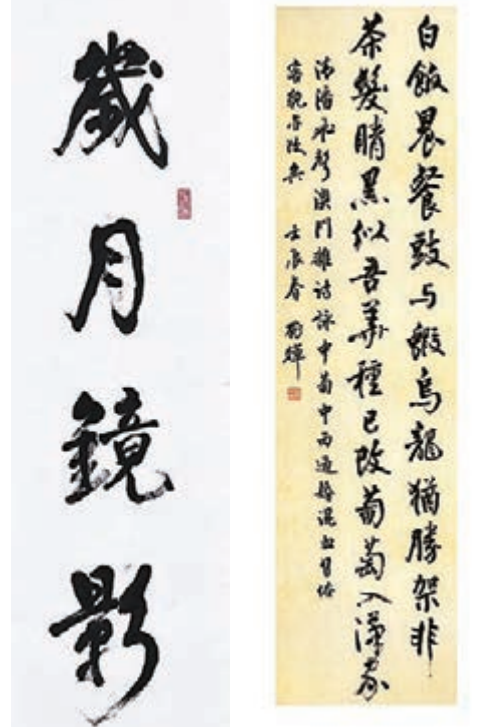 歲月鏡影
白飯晨餐豉与蝦烏龍猶勝架非
茶髮睛黑似吾華種已改葡萄入漢家
清潘飛聲澳門雜詩詠中葡中西通婚混血習俗
容貌亦改矣 壬辰春 輝